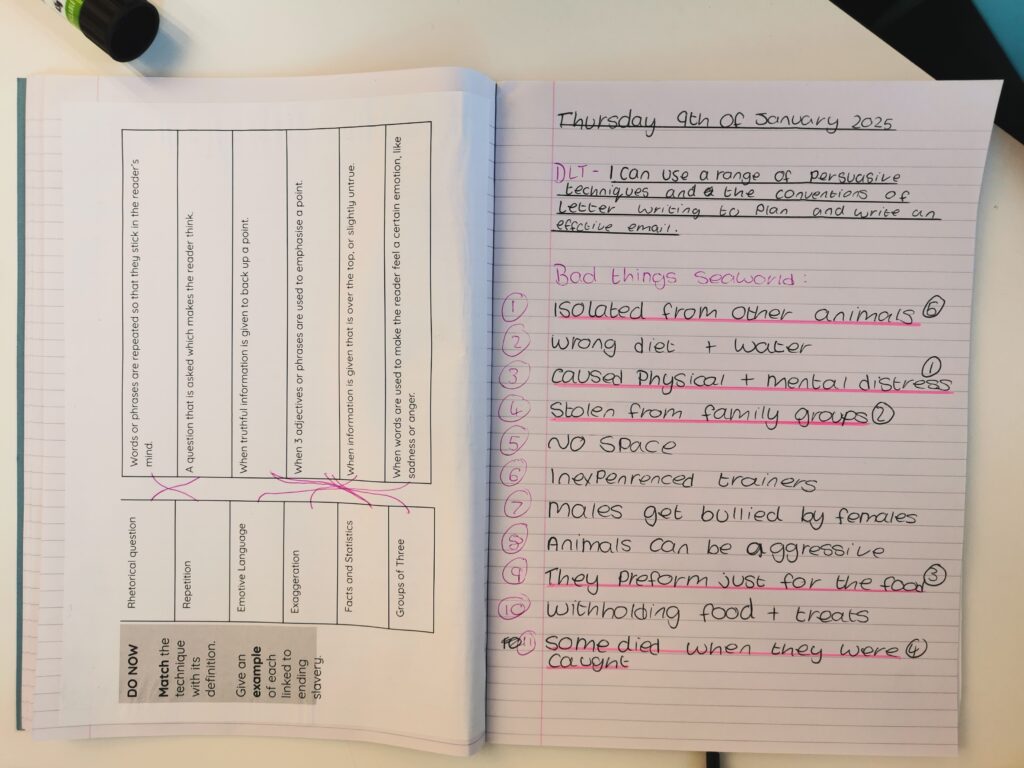 DO NOW
Match the
technique
with its
definition.
Give an
example
of each
linked to
ending
slavery.
Rhetorical question
Repetition
Emotive Language
Exaggeration
Facts and Statistics
Groups of Three
Words or phrases are repeated so that they stick in the reader's
mind.
A question that is asked which makes the reader think.
When truthful information is given to back up a point.
When 3 adjectives or phrases are used to emphasise a point.
When information is given that is over the top, or slightly untrue.
When words are used to make the reader feel a certain emotion, like
sadness or anger.
Thursday 9th of January 2025
DLT - I can use a range of persuasive
techniques and the conventions of
letter writing to plan and write an
effctive email.
Bad things seaworld:
1 Isolated from other animals
2 wrong diet + water
3 caused Physical + mental distress 1
4 Stolen from family groups 2
5 NO Space
6 Inexpenrenced trainers
7 Males get bullied by females
8 Animals can be aggressive
9 They preform just for the food 3
10 withholding food + treats
11 some died when they were 4
caught